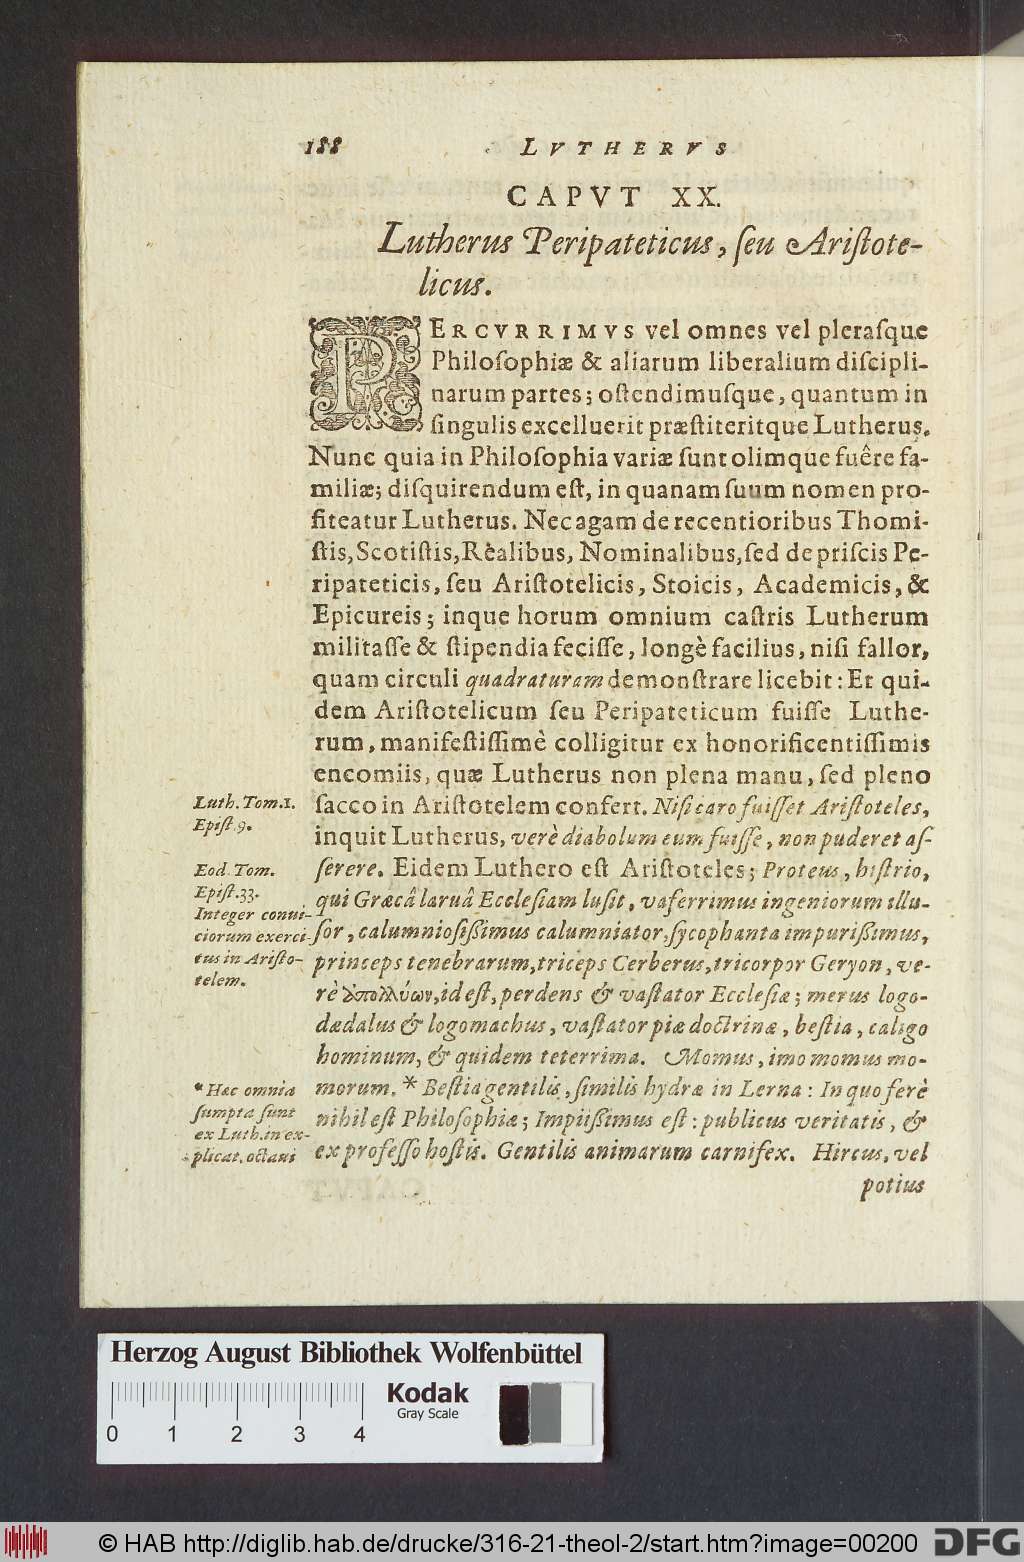 188
LVTHERVS
CAPVT XX.
Lutherus Peripateticus, ſeu Ariſtote-
licus.
PERCVRRIMVS vel omnes vel pleraſque
Philoſophiæ & aliarum liberalium diſcipli-
narum partes; oſtendimuſque, quantum in
ſingulis excelluerit præſtiteritque Lutherus.
Nunc quia in Philoſophia variæ ſunt olimque fuêre fa-
miliæ; diſquirendum eſt, in quanam ſuum nomen pro-
fiteatur Lutherus. Nec agam de recentioribus Thomi-
ſtis, Scotiſtis, Rèalibus, Nominalibus, ſed de priſcis Pe-
ripateticis, ſeu Ariſtotelicis, Stoicis, Academicis, &
Epicureis; inque horum omnium caſtris Lutherum
militaſſe & ſtipendia feciſſe, longè facilius, niſi fallor,
quam circuli quadraturam demonſtrare licebit: Et qui-
dem Ariſtotelicum ſeu Peripateticum fuiſſe Luthe-
rum, manifeſtiſſimè colligitur ex honorificentiſſimis
encomiis, quæ Lutherus non plena manu, ſed pleno
ſacco in Ariſtotelem confert. Niſi caro fuiſſet Ariſtoteles,
inquit Lutherus, verè diabolum eum fuiſſe, non puderet aſ-
ſerere. Eidem Luthero eſt Ariſtoteles; Proteus, hiſtrio,
qui Græcâ laruâ Eccleſiam luſit, vaferrimus ingeniorum illu-
ſor, calumnioſißimus calumniator, ſycophanta impurißimus,
princeps tenebrarum, triceps Cerberus, tricorpor Geryon, ve-
rè ἀπολλύων, id eſt, perdens & vaſtator Eccleſiæ; merus logo-
dædalus & logomachus, vaſtator piæ doctrinæ, beſtia, caligo
hominum, & quidem teterrima. Momus, imo momus mo-
morum. * Beſtia gentilis, ſimilis hydræ in Lerna: In quo ferè
nihil eſt Philoſophiæ; Impiißimus eſt: publicus veritatis, &
ex profeſſo hoſtis. Gentilis animarum carnifex. Hircus, vel
potius
Luth. Tom. 1.
Epiſt. 9.
Eod. Tom.
Epiſt. 33.
Integer conui-
ciorum exerci-
tus in Ariſto-
telem.
* Hæc omnia
ſumpta ſunt
ex Luth. in ex-
plicat. octaui
Herzog August Bibliothek Wolfenbüttel
Kodak
Gray Scale
0 1 2 3 4
© HAB http://diglib.hab.de/drucke/316-21-theol-2/start.htm?image=00200
DFG